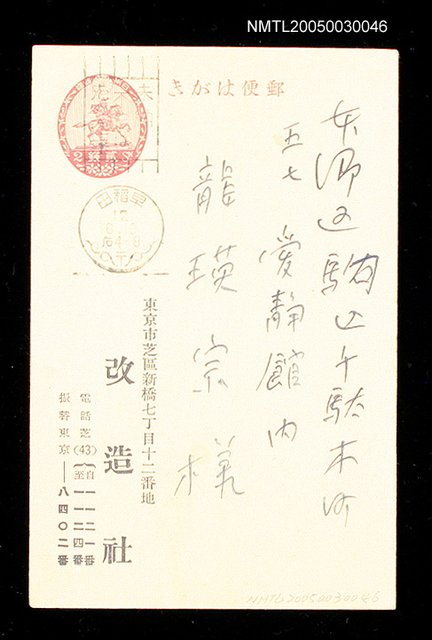 NMTL20050030046
郵便はがき
本郷区駒込千駄木町
五七 愛静館内
龍瑛宗様
東京市芝區新橋七丁目十二番地
改造社
電話芝(43){自一一二一番
至一一二四番
振替東京——八四〇二番
早稲田
NMTL20050030046